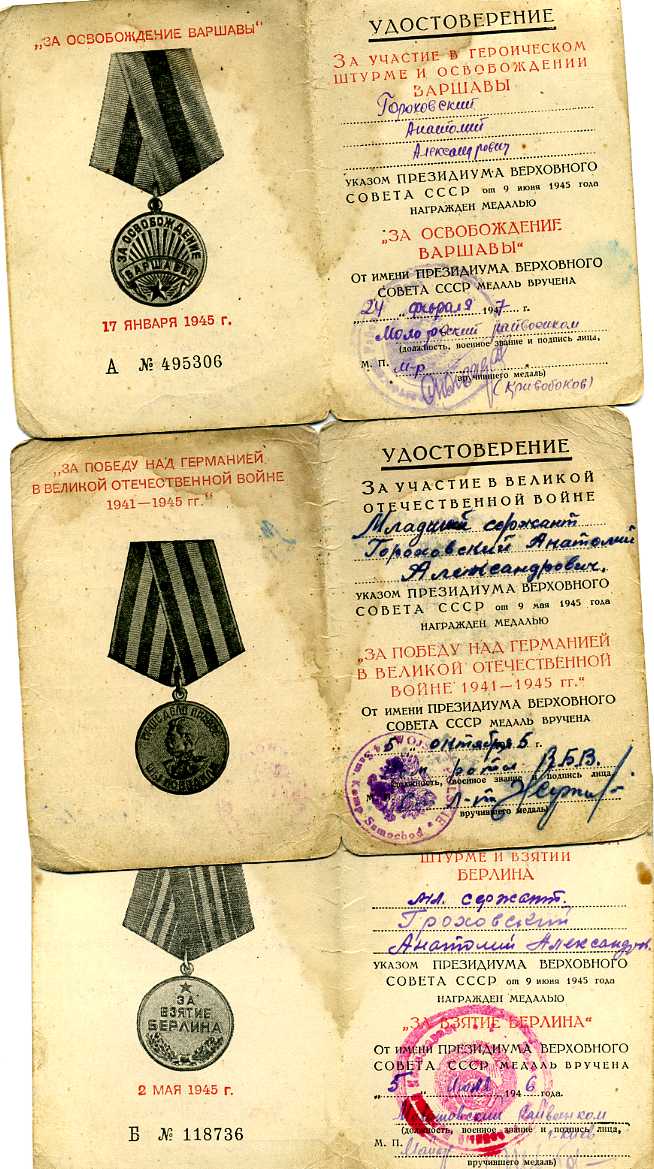 „ЗА ОСВОБОЖДЕНИЕ ВАРШАВЫ“
ЗА ОСВОБОЖДЕНИЕ
ВАРШАВЫ
17 ЯНВАРЯ 1945 г.
А № 495306
УДОСТОВЕРЕНИЕ
ЗА УЧАСТИЕ В ГЕРОИЧЕСКОМ
ШТУРМЕ И ОСВОБОЖДЕНИИ
ВАРШАВЫ
Гороховский
Анатолий
Александрович
УКАЗОМ ПРЕЗИДИУМА ВЕРХОВНОГО
СОВЕТА СССР от 9 июня 1945 года
НАГРАЖДЕН МЕДАЛЬЮ
„ЗА ОСВОБОЖДЕНИЕ
ВАРШАВЫ“
От имени ПРЕЗИДИУМА ВЕРХОВНОГО
СОВЕТА СССР МЕДАЛЬ ВРУЧЕНА
„24„ февраля 1947 г.
райвоенком
(должность, военное звание и подпись лица,
М. П. м-р
вручившего медаль)
(Кривобоков)
„ЗА ПОБЕДУ НАД ГЕРМАНИЕЙ
В ВЕЛИКОЙ ОТЕЧЕСТВЕННОЙ ВОЙНЕ
1941—1945 гг.“
НАШЕ ДЕЛО ПРАВОЕ
МЫ ПОБЕДИЛИ
УДОСТОВЕРЕНИЕ
ЗА УЧАСТИЕ В ВЕЛИКОЙ
ОТЕЧЕСТВЕННОЙ ВОЙНЕ
Младший сержант
Гороховский Анатолий
Александрович.
УКАЗОМ ПРЕЗИДИУМА ВЕРХОВНОГО
СОВЕТА СССР от 9 мая 1945 года
НАГРАЖДЕН МЕДАЛЬЮ
„ЗА ПОБЕДУ НАД ГЕРМАНИЕЙ
В ВЕЛИКОЙ ОТЕЧЕСТВЕННОЙ
ВОЙНЕ 1941—1945 гг.“
От имени ПРЕЗИДИУМА ВЕРХОВНОГО
СОВЕТА СССР МЕДАЛЬ ВРУЧЕНА
„5„ октября 5 г.
роты
должность, военное звание и подпись лица
М. л-т
вручившего медаль
Samochod
ЗА
ВЗЯТИЕ
БЕРЛИНА
2 МАЯ 1945 г.
Б № 118736
ШТУРМЕ И ВЗЯТИИ
БЕРЛИНА
мл. сержант.
Гроховский
Анатолий
УКАЗОМ ПРЕЗИДИУМА ВЕРХОВНОГО
СОВЕТА СССР от 9 июня 1945 года
НАГРАЖДЕН МЕДАЛЬЮ
„ЗА ВЗЯТИЕ БЕРЛИНА“
От имени ПРЕЗИДИУМА ВЕРХОВНОГО
СОВЕТА СССР МЕДАЛЬ ВРУЧЕНА
„5„ июля 1946 года.
(должность, военное звание и подпись лица,
М. П.
вручившего медаль)